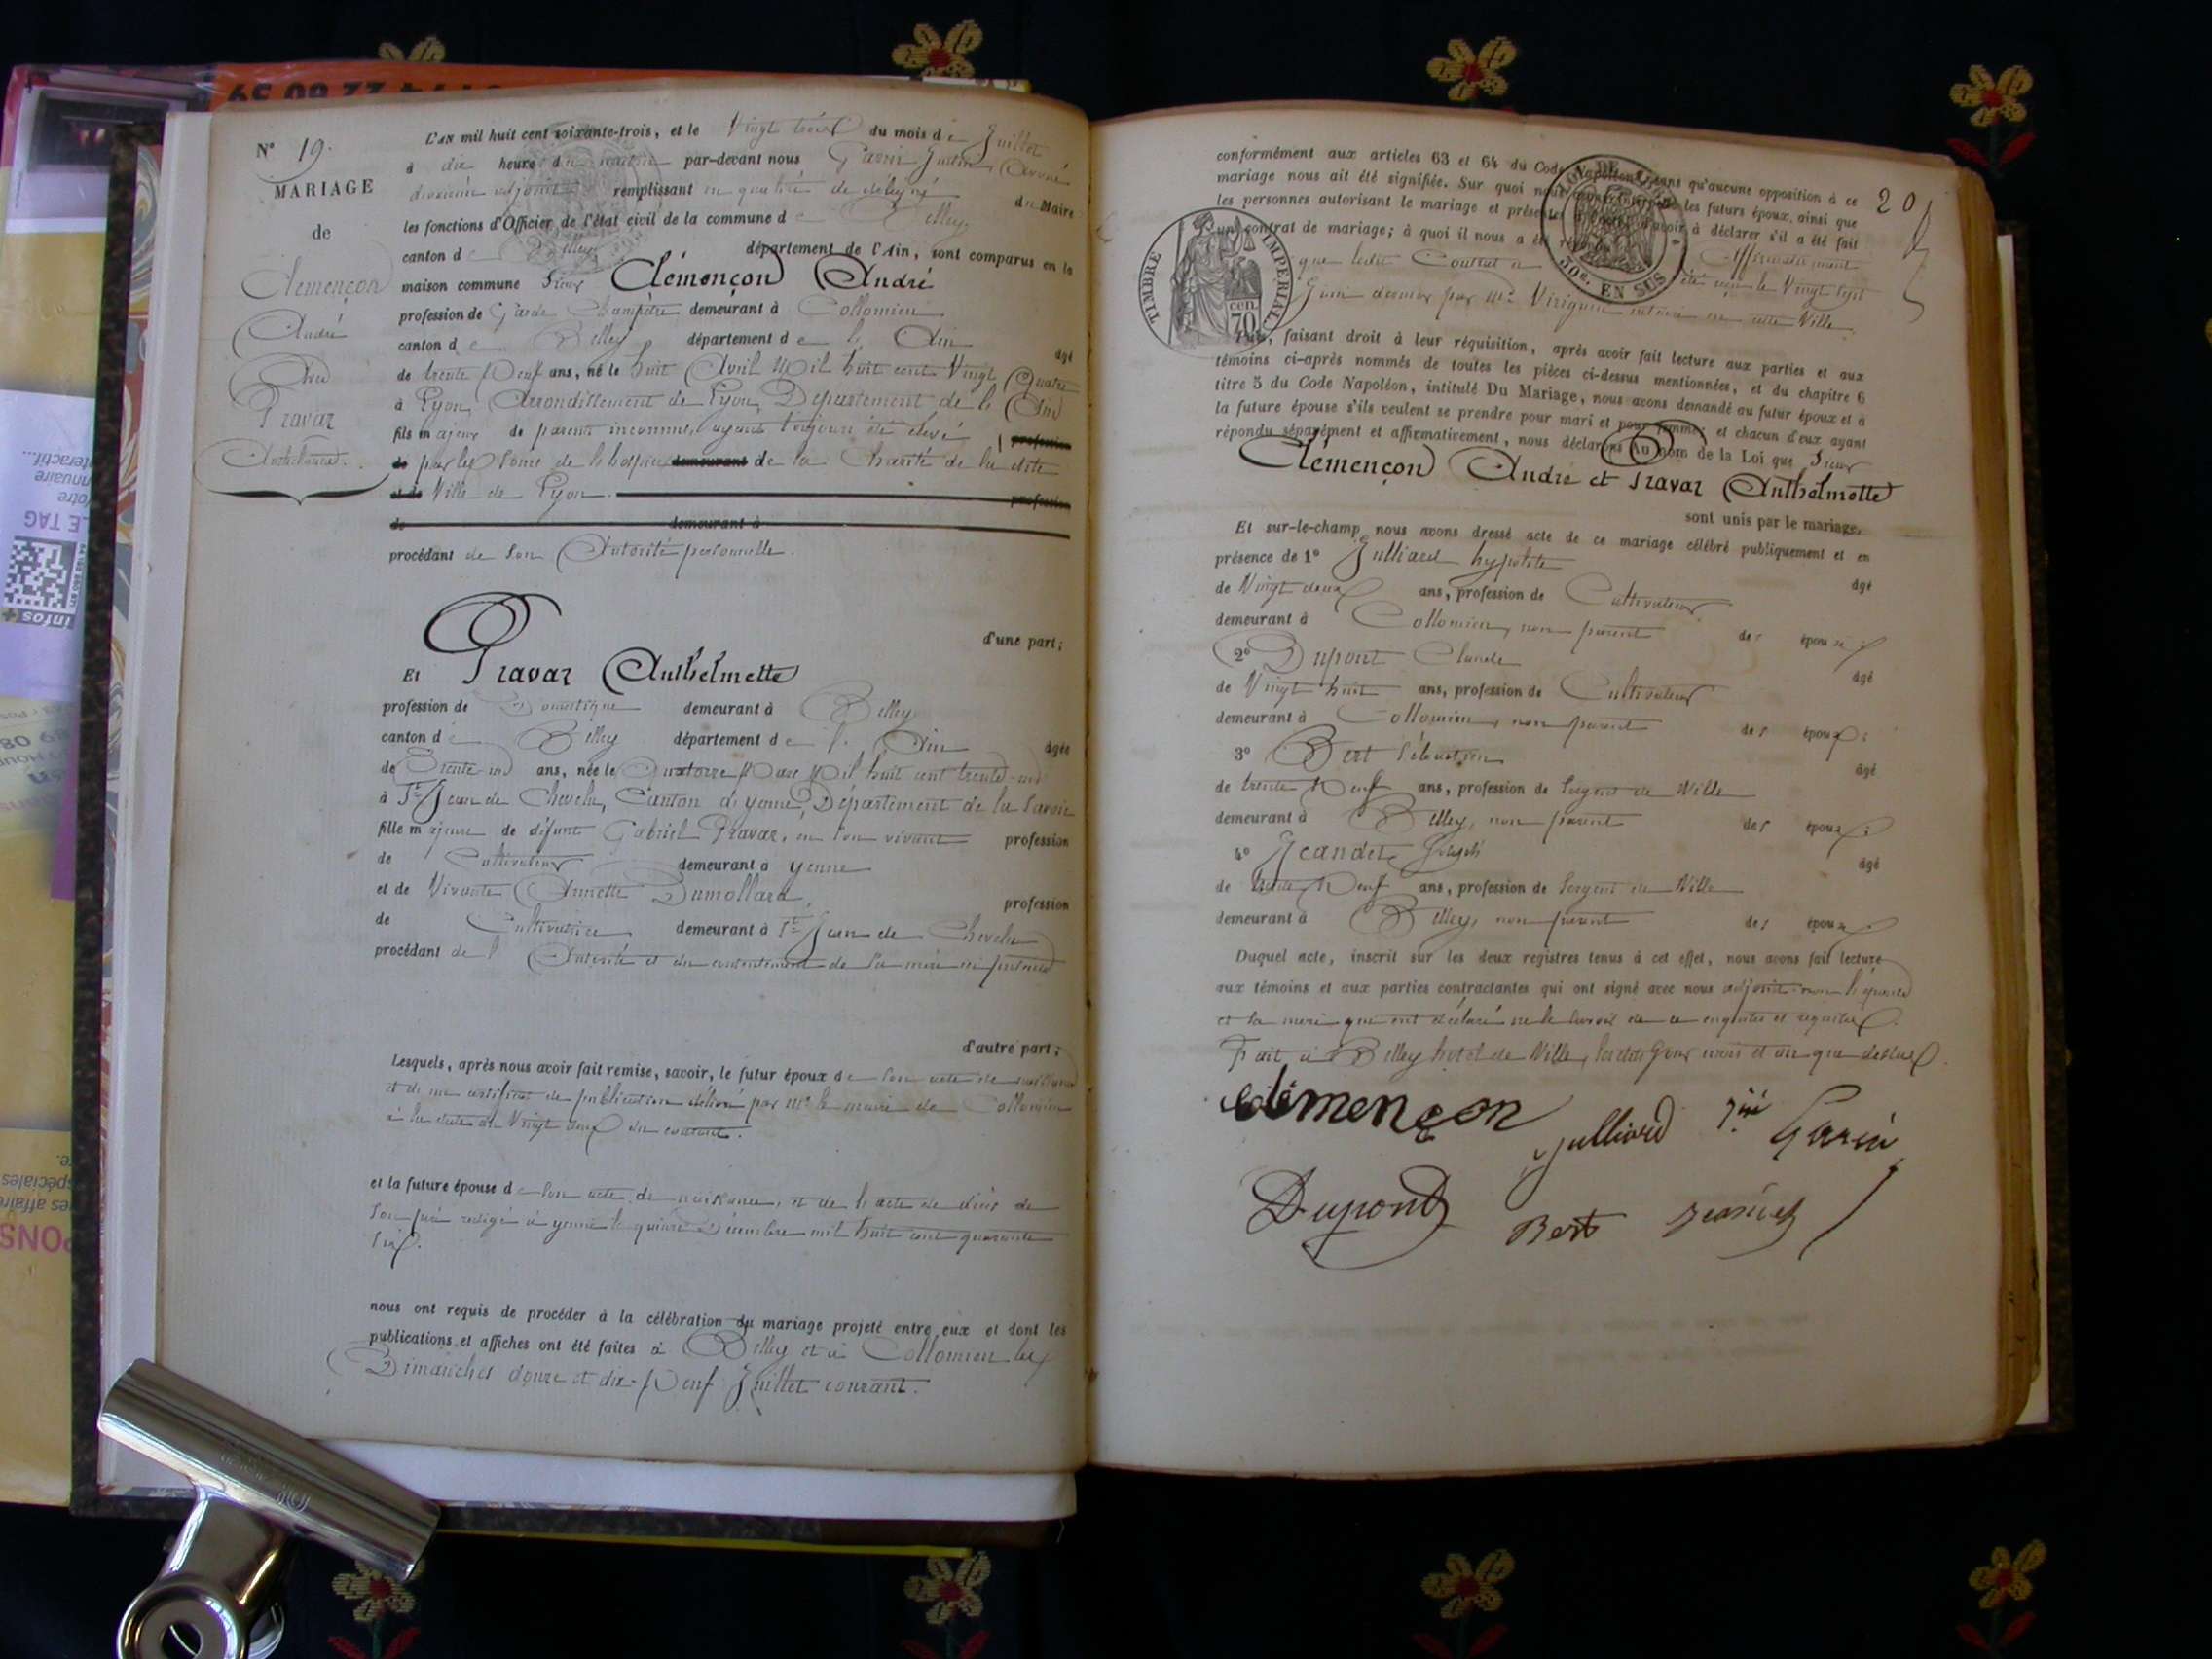 N° 19.
MARIAGE
de
Clémençon
André
Avec
Pravaz
Anthelmette.
L'AN mil huit cent soixante-trois, et le Vingt trois du mois de Juillet
à dix heures du matin par-devant nous Garin Avoué
deuxième adjoint remplissant en qualité de délégué du Maire
les fonctions d'Officier de l'état civil de la commune de Belley,
canton de Belley, département de l'Ain, sont comparus en la
maison commune Sieur Clémençon André
profession de Garde Champêtre demeurant à Collomieu
canton de Belley département de l' Ain âgé
de trente Neuf ans, né le huit Avril Mil huit cent Vingt Quatre
à Lyon, Arrondissement de Lyon, Département de l' Ain
fils majeur de parents inconnus, ayant toujours été élevé profession
de par les soins de l'hospice demeurant de la Charité de la dite
et de Ville de Lyon. profession
de demeurant à
procédant de son Autorité personnelle.
d'une part;
Et Pravaz Anthelmette
profession de Domestique demeurant à Belley
canton de Belley département de l' Ain âgée
de Trente un ans, née le Quatorze Mars Mil huit cent trente-un
à St Jean de Chevelu, Canton d'yenne, Département de la Savoie
fille majeure de défunt Gabriel Pravaz, en son vivant profession
de Cultivateur demeurant à yenne
et de Vivante Annette Dumollard, profession
de Cultivatrice demeurant à St Jean de Chevelu
procédant de l' Autorité et du consentement de sa mère ci présente
d'autre part;
Lesquels, après nous avoir fait remise, savoir, le futur époux de son acte de naissance
et d'un certificat de publication délivré par Mr le maire de Collomieu
à la date du Vingt deux du courant.
et la future épouse de son acte de naissance, et de l'acte de décès de
son père rédigé à yenne le quinze Décembre mil huit cent quarante
six.
nous ont requis de procéder à la célébration du mariage projeté entre eux et dont les
publications et affiches ont été faites à Belley et à Collomieu les
Dimanches douze et dix-Neuf Juillet courant.
20
conformément aux articles 63 et 64 du Code Napoléon, sans qu'aucune opposition à ce
mariage nous ait été signifiée. Sur quoi nous avons interpellé les futurs époux, ainsi que
les personnes autorisant le mariage et présentes à l'acte, d'avoir à déclarer s'il a été fait
un contrat de mariage; à quoi il nous a été répondu Affirmativement
que ledit Contrat a été reçu le Vingt sept
Juin dernier par Me Virignin notaire en cette Ville.
TIMBRE IMPERIAL
70 cen.
30e. EN SUS
Puis, faisant droit à leur réquisition, après avoir fait lecture aux parties et aux
témoins ci-après nommés de toutes les pièces ci-dessus mentionnées, et du chapitre 6
titre 5 du Code Napoléon, intitulé Du Mariage, nous avons demandé au futur époux et à
la future épouse s'ils veulent se prendre pour mari et pour femme; et chacun d'eux ayant
répondu séparément et affirmativement, nous déclarons Au nom de la Loi que Sieur
Clémençon André et Pravaz Anthelmette
sont unis par le mariage.
Et sur-le-champ nous avons dressé acte de ce mariage célébré publiquement et en
présence de 1° Julliard hypolite âgé
de Vingt deux ans, profession de Cultivateur
demeurant à Collomieu, non parent des époux;
2° Dupont Claude âgé
de Vingt huit ans, profession de Cultivateur
demeurant à Collomieu, non parent des époux;
3° Bert Sébastien âgé
de trente Neuf ans, profession de Sergent de Ville
demeurant à Belley, non parent des époux;
4° Jeandet Joseph âgé
de trente Neuf ans, profession de Sergent de Ville
demeurant à Belley, non parent des époux.
Duquel acte, inscrit sur les deux registres tenus à cet effet, nous avons fait lecture
aux témoins et aux parties contractantes qui ont signé avec nous adjoint non l'épouse
et la mère qui ont déclaré ne le savoir de ce enquises et requises.
Fait à Belley hotel de Ville, les dits jour mois et an que dessus.
Clémençon
Julliard
Garin
Dupond
Bert
Jeandet